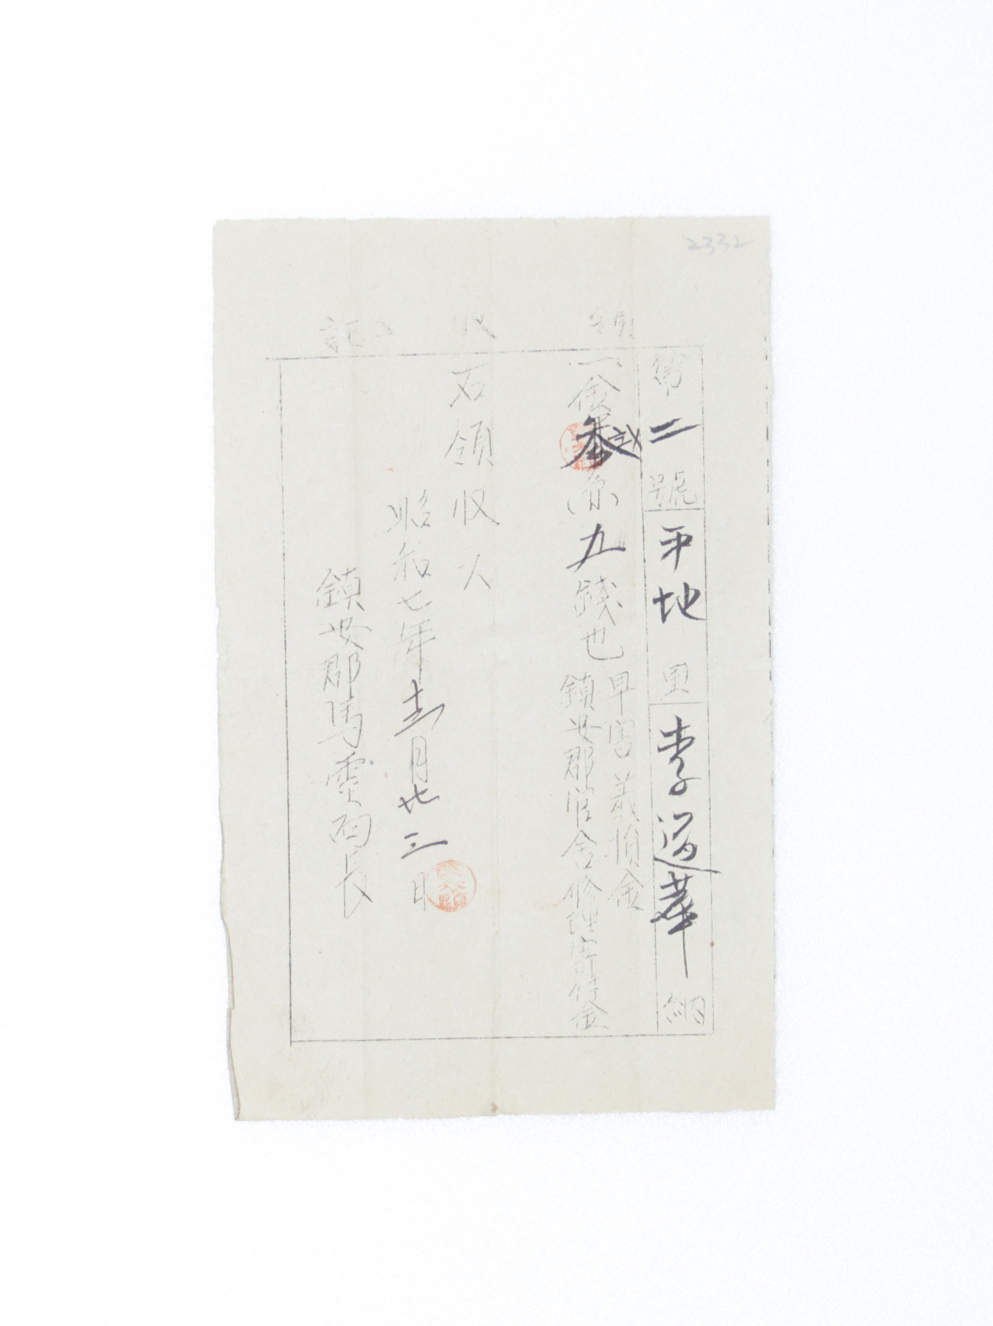 2332
領收証
第二號 平地里 李道華 納
一金貳円五錢也
旱害義損金
鎮安郡廳舍修理寄付金
右領收人
昭和七年十二月廿三日
鎮安郡馬靈面長